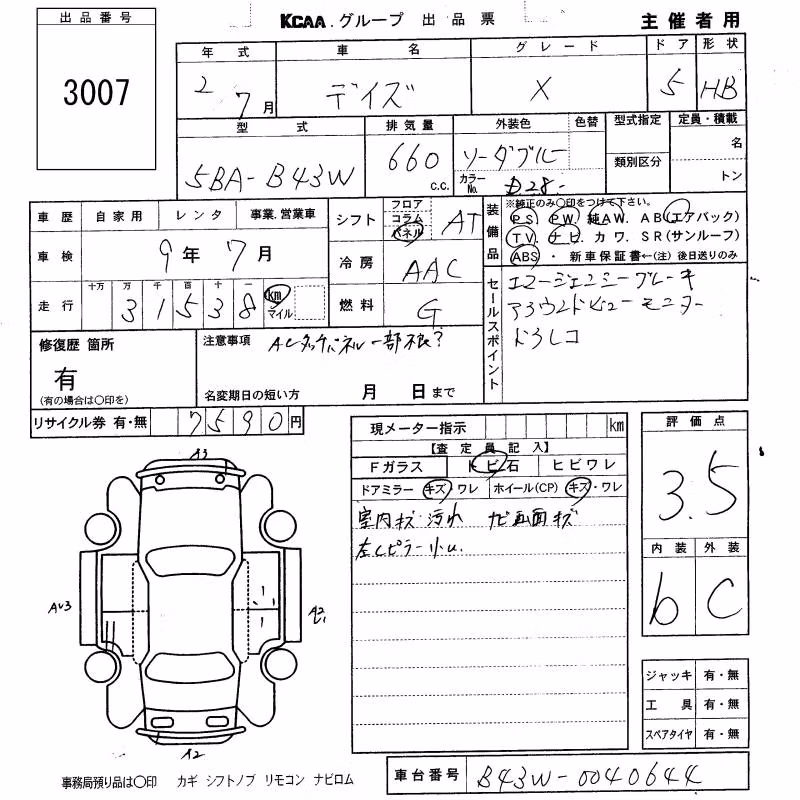 出品番号
3007
KCAA.グループ 出品票
主催者用
年式 車名 グレード ドア 形状
2 7月 デイズ X 5 HB
型式 排気量 外装色 色替 型式指定 定員・積載
5BA-B43W 660 c.c. ソーダブルー カラーNo. 類別区分 名
トン
車歴 自家用 レンタ 事業.営業車
シフト フロア コラム パネル AT
装備品
※純正のみ〇印をつけて下さい。
PS PW. 純AW. AB(エアバック)
TV. ナビ カワ. SR(サンルーフ)
ABS ・ 新車保証書←(注) 後日送りのみ
車検 9年 7月
冷房 AAC
走行 十万 万 千 百 十 一 km マイル
3 1 5 3 8
燃料 G
セールスポイント
エマージェンシーブレーキ
アラウンドビューモニター
ドラレコ
修復歴 箇所
有
(有の場合は〇印を)
注意事項 ACタッチパネル一部不良?
名変期日の短い方 月 日まで
リサイクル券 有・無 7590円
現メーター指示 km
【査定員記入】
Fガラス トビ石 ヒビワレ
ドアミラー キズ・ワレ ホイール(CP) キズ・ワレ
室内キズ・汚れ ナビ画面キズ
左Cピラー小U.
評価点
3.5
内装 外装
b C
A3
A2
A2
ジャッキ 有・無
工具 有・無
スペアタイヤ 有・無
事務局預り品は〇印 カギ シフトノブ リモコン ナビロム
車台番号 B43W-0040644